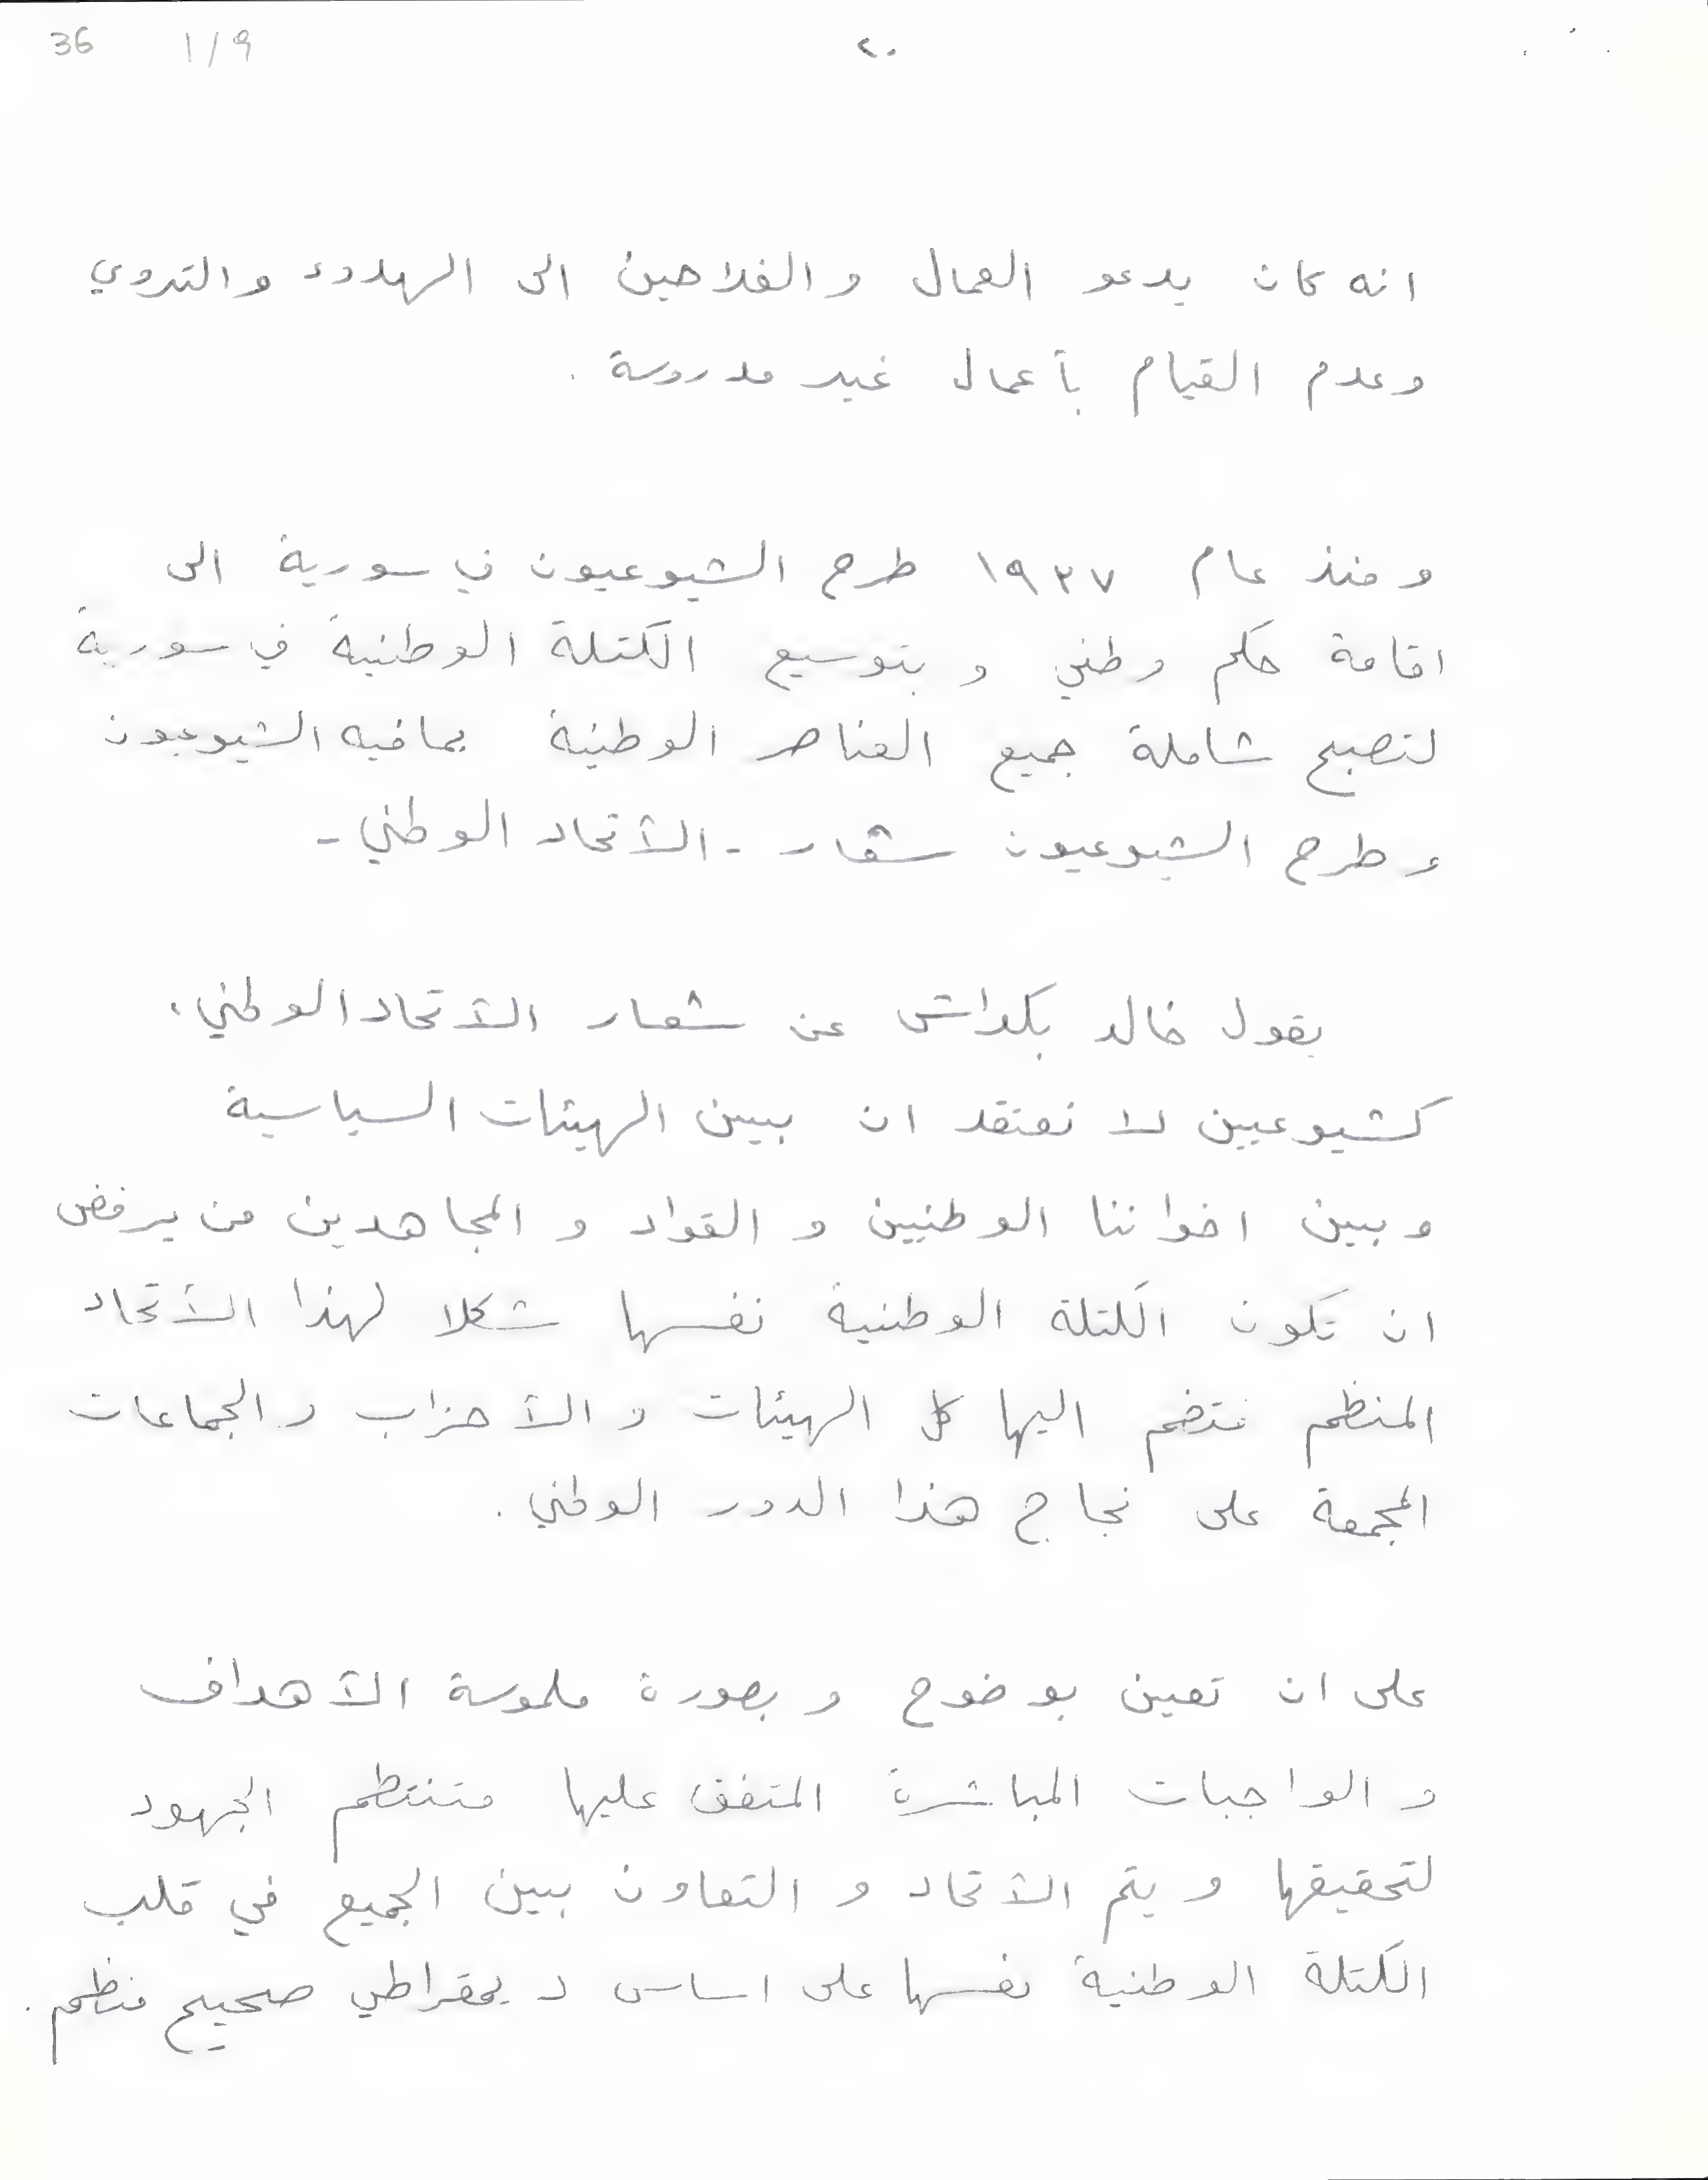 36 1/9
٢٠
انه كان يدعو العمال و الفلاحين الى الهدوء و التروي
وعدم القيام بأعمال غير مدروسة .
و منذ عام ١٩٣٧ طرح الشيوعيون في سورية الى
اقامة حكم وطني و بتوسيع الكتلة الوطنية في سورية
لتصبح شاملة جميع العناصر الوطنية بما فيه الشيوعيون
و طرح الشيوعيون شعار - الأتحاد الوطني -
يقول خالد بكداش عن شعار الأتحاد الوطني ،
كشيوعيين لا نعتقد ان بيين الهيئات السياسية
و بيين اخواننا الوطنيين و القواد و المجاهدين من يرفض
ان تكون الكتلة الوطنية نفسها شكلا لهذا الأتحاد
المنظم فتضم اليها كل الهيئات و الأحزاب و الجماعات
المجمعة على نجاح هذا الدور الوطني .
على ان تعين بوضوح و بصورة ملموسة الأهداف
و الواجبات المباشرة المتفق عليها فتنتظم الجهود
لتحقيقها و يتم الأتحاد و التعاون بيين الجميع في قلب
الكتلة الوطنية نفسها على اساس ديمقراطي صحيح منظم .